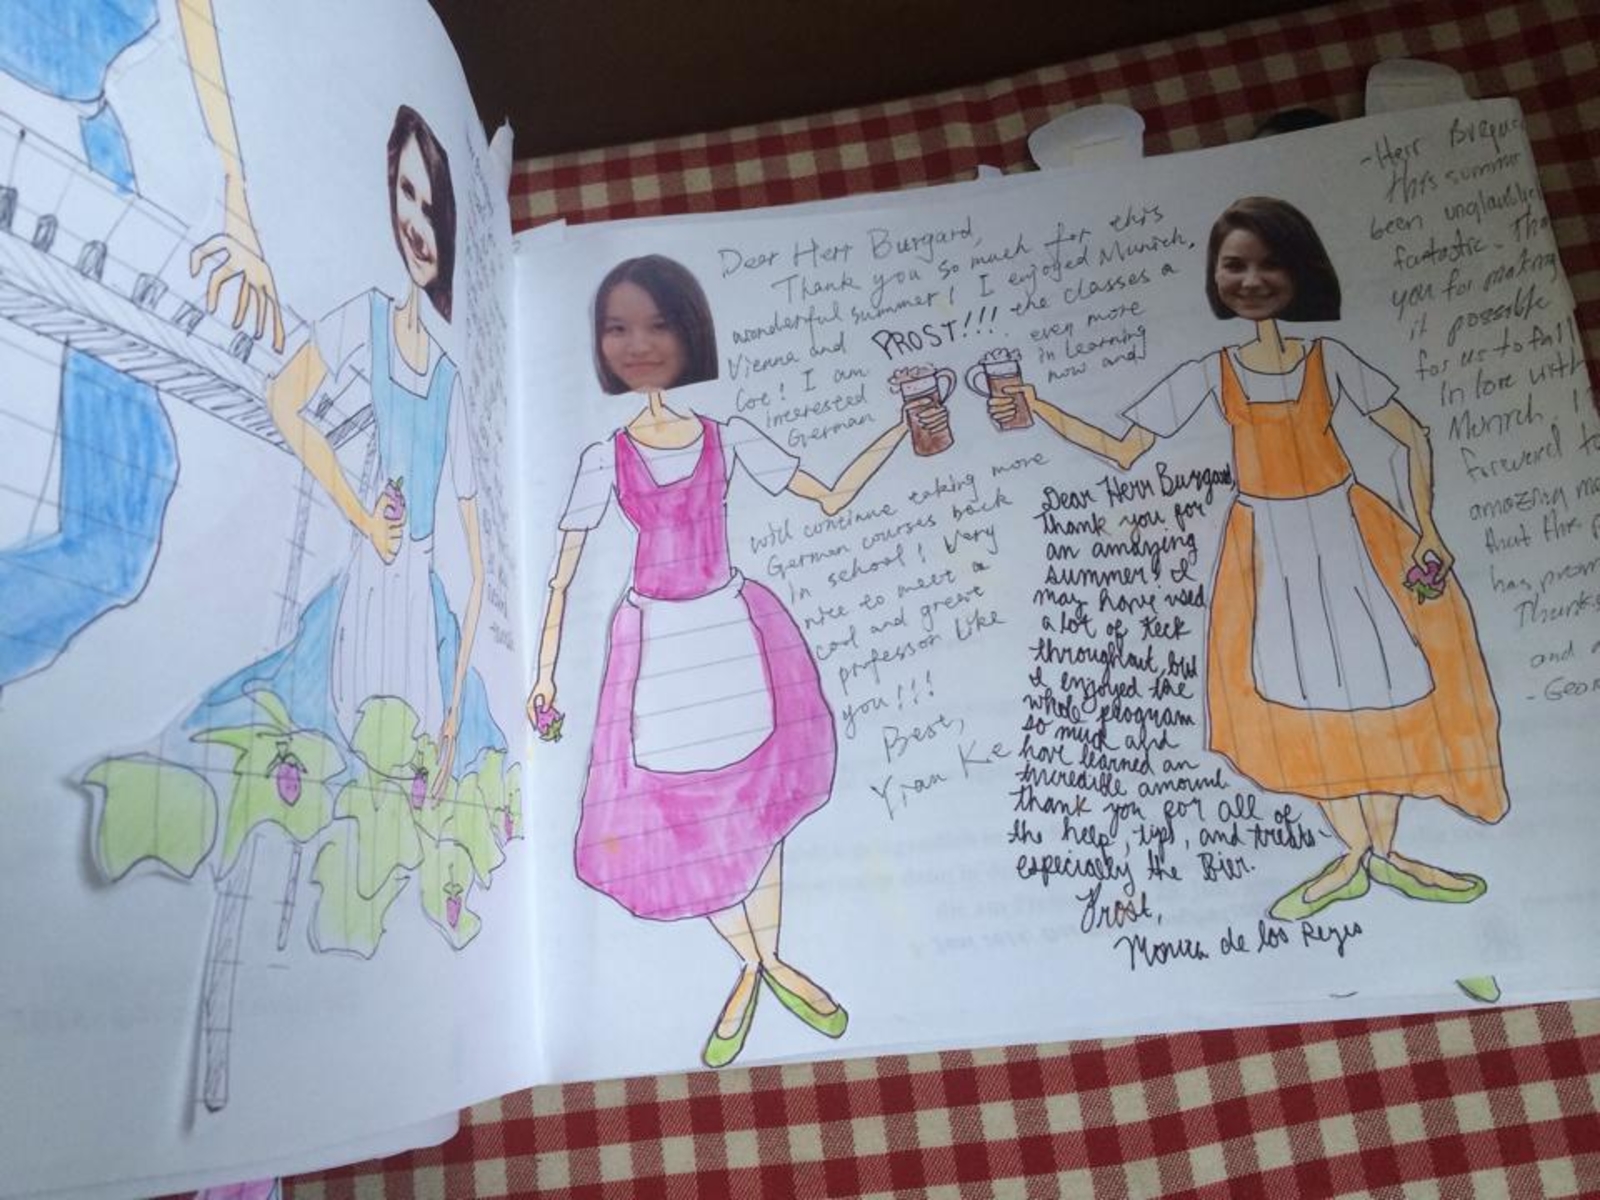 Dear Herr Burgard,
Thank you so much for this
wonderful summer! I enjoyed Munich,
Vienna and the classes a
Lot! I am even more
interested in learning
German now and
will continue taking more
German courses back
in school! Very
nice to meet a
cool and great
professor like
you!!!
Best,
Yian Ke
PROST!!!
Dear Herr Burgard,
thank you for
an amazing
summer. I
may have used
a lot of Keck
throughout, but
I enjoyed the
whole program
so much and
have learned an
incredible amount.
thank you for all of
the help, tips, and treats-
especially the Bier.
Prost,
Monica de los Reyes
-Herr
this summer
been unglaublich
fantastic.
you for making
it possible
for us to fall
in love with
Munich. I
forward to
amazing
that the
has
Thanks
and